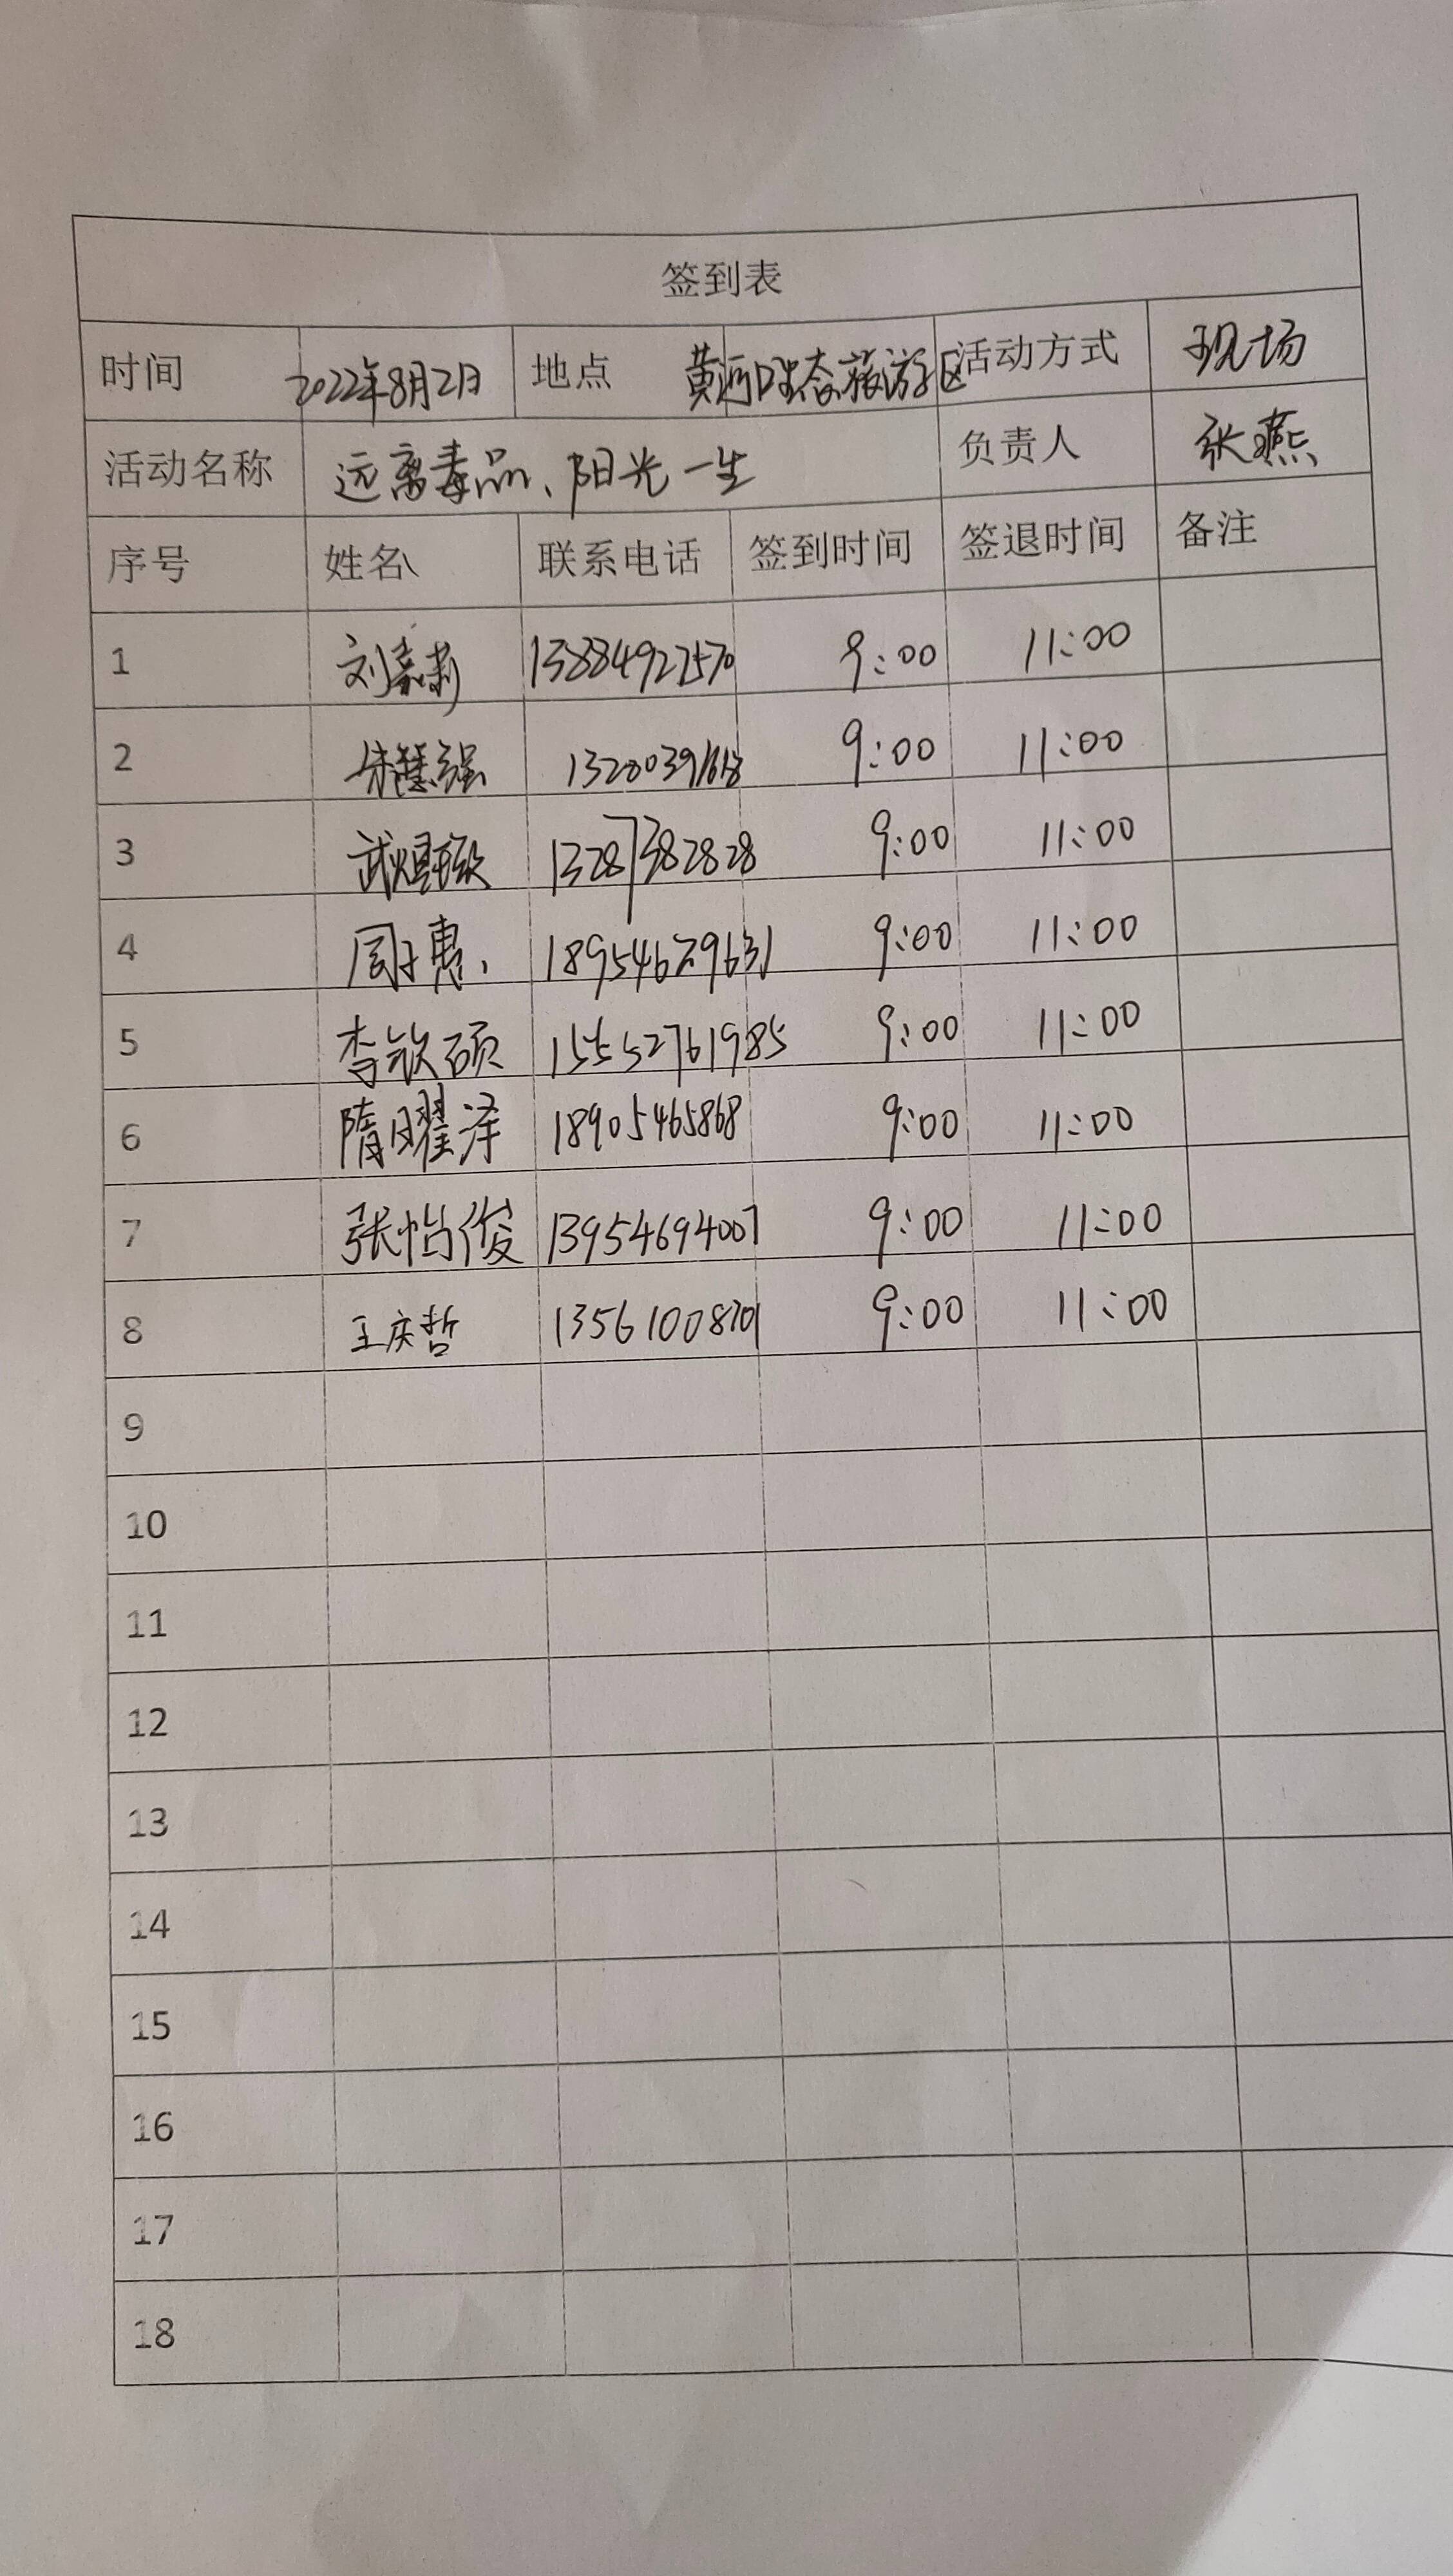 签到表
时间 2022年8月2日 地点 黄河口生态旅游区 活动方式 现场
活动名称 远离毒品、阳光一生 负责人 张燕
序号 姓名 联系电话 签到时间 签退时间 备注
1 刘嘉莉 13884927570 9:00 11:00
2 9:00 11:00
3 13287382828 9:00 11:00
4 周子惠 18954629631 9:00 11:00
5 李钦硕 15552761985 9:00 11:00
6 隋曜泽 18905465868 9:00 11:00
7 张怡俊 13954694007 9:00 11:00
8 王庆哲 13561008701 9:00 11:00
9
10
11
12
13
14
15
16
17
18